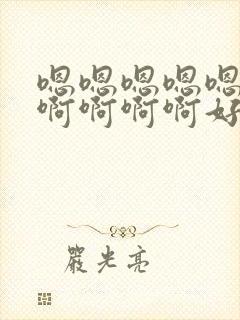 嗯嗯嗯嗯嗯
啊啊啊啊好
嚴光亮